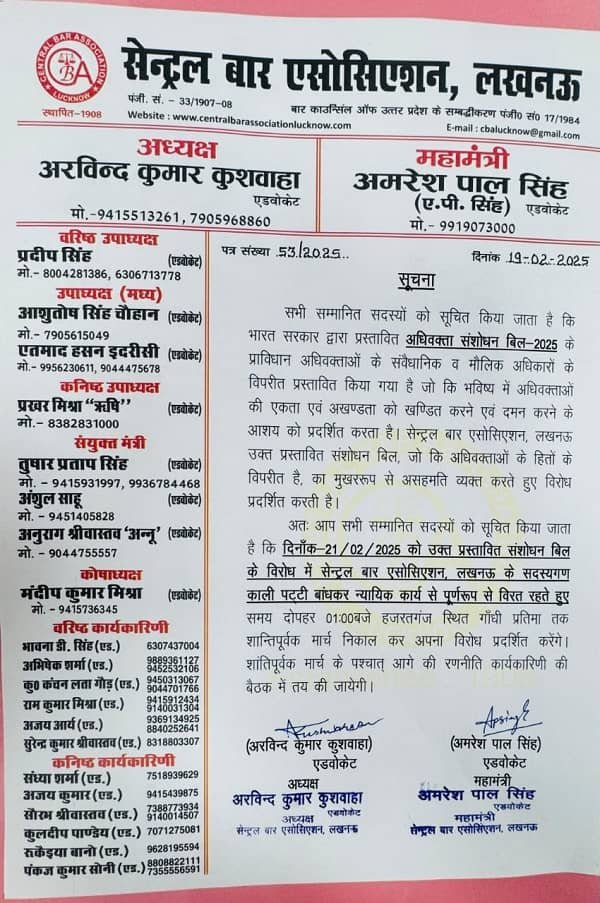 CENTRAL BAR ASSOCIATION
CBA
LUCKNOW
स्थापित-1908
सेन्ट्रल बार एसोसिएशन, लखनऊ
पंजी. सं. - 33/1907-08
बार काउन्सिल ऑफ उत्तर प्रदेश के सम्बद्धीकरण पंजी0 सं0 17/1984
Website : www.centralbarassociationlucknow.com
E-mail : cbalucknow@gmail.com
अध्यक्ष
अरविन्द कुमार कुशवाहा
एडवोकेट
मो.-9415513261, 7905968860
महामंत्री
अमरेश पाल सिंह
(ए.पी. सिंह) एडवोकेट
मो.- 9919073000
वरिष्ठ उपाध्यक्ष
प्रदीप सिंह (एडवोकेट)
मो.- 8004281386, 6306713778
उपाध्यक्ष (मध्य)
आशुतोष सिंह चौहान (एडवोकेट)
मो. - 7905615049
एतमाद हसन इदरीसी (एडवोकेट)
मो.- 9956230611, 9044475678
कनिष्ठ उपाध्यक्ष
प्रखर मिश्रा “ऋषि” (एडवोकेट)
मो. - 8382831000
संयुक्त मंत्री
तुषार प्रताप सिंह (एडवोकेट)
मो. - 9415931997, 9936784468
अंशुल साहू (एडवोकेट)
मो. - 9451405828
अनुराग श्रीवास्तव ‘अन्नू’ (एडवोकेट)
मो. - 9044755557
कोषाध्यक्ष
मंदीप कुमार मिश्रा (एडवोकेट)
मो. - 9415736345
वरिष्ठ कार्यकारिणी
भावना डी. सिंह (एड.) 6307437004
अभिषेक शर्मा (एड.) 9889361127
9452532106
कु0 कंचन लता गौड़ (एड.) 9450313067
9044701766
राम कुमार मिश्रा (एड.) 9415912434
9140031304
अजय आर्य (एड.) 9369134925
8840252641
सुरेन्द्र कुमार श्रीवास्तव (एड.) 8318803307
कनिष्ठ कार्यकारिणी
संध्या शर्मा (एड.) 7518939629
अजय कुमार (एड.) 9415439875
सौरभ श्रीवास्तव (एड.) 7388773934
9140014507
कुलदीप पाण्डेय (एड.) 7071275081
रूकैइया बानो (एड.) 9628195594
पंकज कुमार सोनी (एड.) 8808822111
7355556591
पत्र संख्या 53/2025
दिनांक 19-02-2025
सूचना
सभी सम्मानित सदस्यों को सूचित किया जाता है कि
भारत सरकार द्वारा प्रस्तावित अधिवक्ता संशोधन बिल-2025 के
प्राविधान अधिवक्ताओं के संवैधानिक व मौलिक अधिकारों के
विपरीत प्रस्तावित किया गया है जो कि भविष्य में अधिवक्ताओं
की एकता एवं अखण्डता को खण्डित करने एवं दमन करने के
आशय को प्रदर्शित करता है। सेन्ट्रल बार एसोसिएशन, लखनऊ
उक्त प्रस्तावित संशोधन बिल, जो कि अधिवक्ताओं के हितों के
विपरीत है, का मुखररूप से असहमति व्यक्त करते हुए विरोध
प्रदर्शित करती है।
अतः आप सभी सम्मानित सदस्यों को सूचित किया जाता
है कि दिनाँक-21/02/2025 को उक्त प्रस्तावित संशोधन बिल
के विरोध में सेन्ट्रल बार एसोसिएशन, लखनऊ के सदस्यगण
काली पट्टी बांधकर न्यायिक कार्य से पूर्णरूप से विरत रहते हुए
समय दोपहर 01:00बजे हजरतगंज स्थित गाँधी प्रतिमा तक
शान्तिपूर्वक मार्च निकाल कर अपना विरोध प्रदर्शित करेंगे।
शांतिपूर्वक मार्च के पश्चात् आगे की रणनीति कार्यकारिणी की
बैठक में तय की जायेगी।
(अरविन्द कुमार कुशवाहा)
एडवोकेट
अध्यक्ष
अरविन्द कुमार कुशवाहा
एडवोकेट
अध्यक्ष
सेन्ट्रल बार एसोसिएशन, लखनऊ
(अमरेश पाल सिंह)
एडवोकेट
महामंत्री
अमरेश पाल सिंह
एडवोकेट
महामंत्री
सेन्ट्रल बार एसोसिएशन, लखनऊ